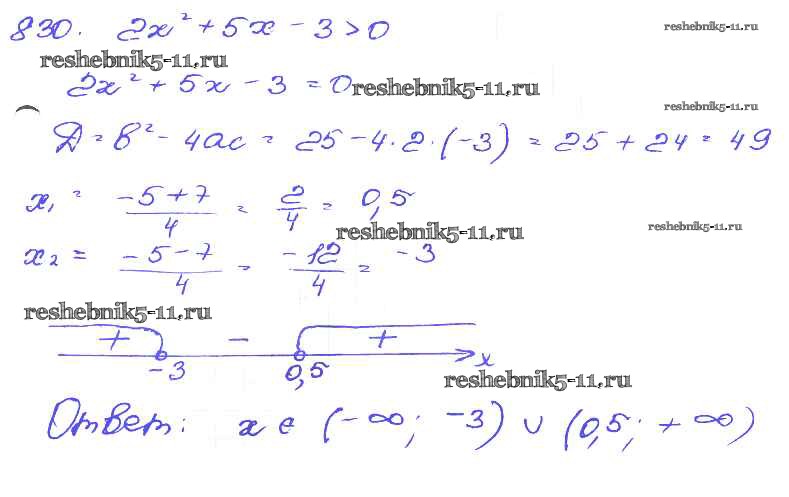 830. 2x² + 5x - 3 > 0
reshebnik5-11.ru
reshebnik5-11.ru
2x² + 5x - 3 = 0
reshebnik5-11.ru
reshebnik5-11.ru
Д = b² - 4ac = 25 - 4·2·(-3) = 25 + 24 = 49
x₁ = (-5+7)/4 = 2/4 = 0,5
reshebnik5-11.ru
reshebnik5-11.ru
x₂ = (-5-7)/4 = -12/4 = -3
reshebnik5-11.ru
+ - +
-3 0,5 x
reshebnik5-11.ru
Ответ: x ∈ (-∞; -3) ∪ (0,5; +∞)